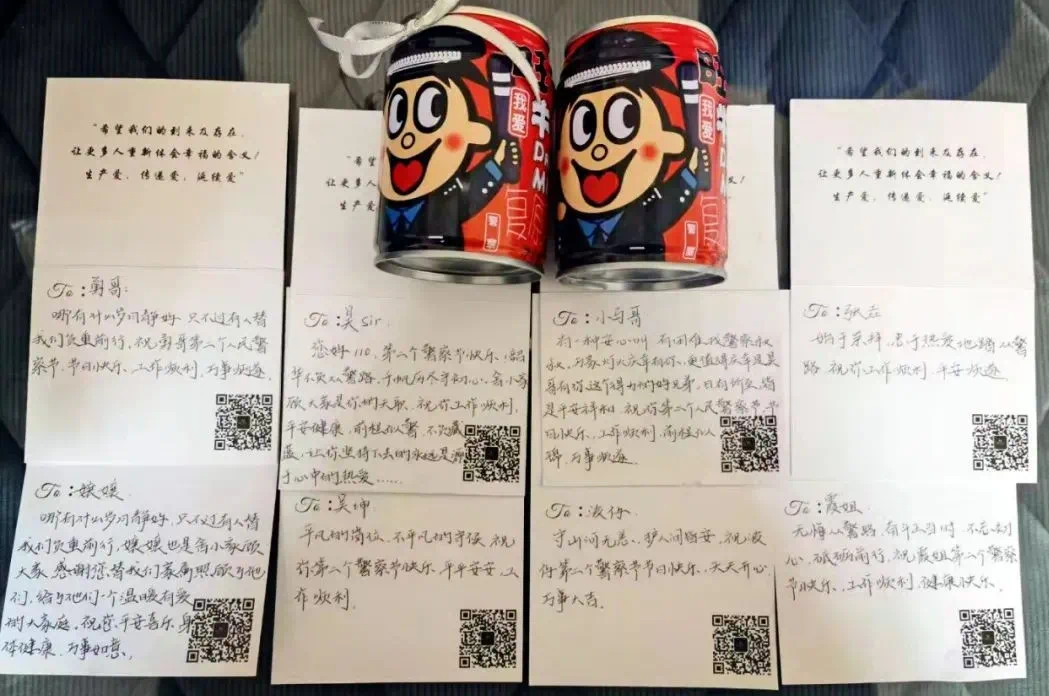 "希望我们的到来及存在,
让更多人重新体会幸福的含义!
生产爱、传递爱、延续爱"
"希
让更多人
生产爱、
我爱
牛
警察
我爱
牛
警察
"希望我们的到来及存在,
让更多人重新体会幸福的含义!
生产爱、传递爱、延续爱"
To:勇哥:
哪有什么岁月静好 只不过有人替
我们负重前行,祝勇哥第二个人民警
察节,节日快乐、工作顺利、万事顺遂。
To:吴Sir.
您好110,第二个警察节快乐,韶
华不负从警路,千帆历尽守初心,舍小家
顾大家是你的天职,祝你工作顺利,
平安健康,前程从警,不负藏
蓝,让你坚持下去的永远是源
于心中的热爱……
To:小马哥
有一种安心叫 有困难找警察叔
叔,万家灯火
哥有你这个得力的好兄弟,
是平安祥和 祝你第二个人民警察节 节
日快乐,工作顺利,前程
万事顺遂
To:张
始于 忠于热爱地踏从警
路 祝你工作顺利,平安顺遂
To:嬢嬢
哪有什么岁月静好,只不过有人替
我们负重前行,嬢嬢也是舍小家顾
大家 感谢您替我们 照顾
们,给 他们一个温暖有爱
的大家庭,祝您平安喜乐 身
体健康、万事如意、
To:吴坤
平凡的岗位,不平凡的守候 祝
你第二个警察节快乐、平平安安,工
作顺利.
To:波仔
守山河无恙、护人间皆安,祝波
仔第二个警察节节日快乐,天天开心
万事大吉.
To:霞姐
无悔从警路,奋斗正当时,不忘初
心,砥砺前行,祝霞姐第二个警察
节快乐、工作顺利、健康快乐.